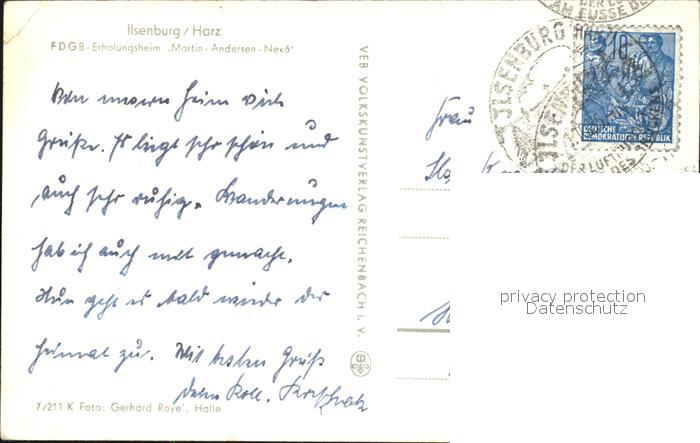 Ilsenburg / Harz
FDGB - Erholungsheim „Martin - Andersen - Nexö"
Von unserm Heim viele
Grüße. Es liegt sehr schön und
auch sehr ruhig. Wanderungen
hab ich auch mit gemacht.
Nun geht es bald wieder der
Heimat zu. Mit besten Gruß
deine Koll.
7/211 K Foto: Gerhard Roye', Halle
VEB VOLKSKUNSTVERLAG REICHENBACH i. V.
Frau
ILSENBURG HARZ
AM FUSSE DE
10
DEUTSCHE
DEMOKRATISCHE REPUBLIK
ILSENB
DER LUFT
privacy protection
Datenschutz